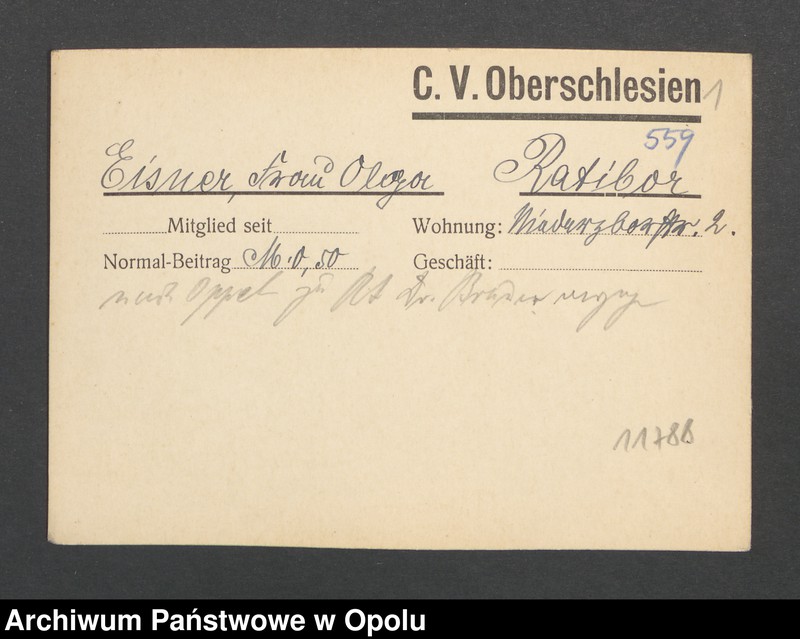 C. V. Oberschlesien 1
559
Eisner, Frau Olga Ratibor
Mitglied seit Wohnung: Niederzborstr. 2.
Normal-Beitrag M. 0,50 Geschäft:
nach Oppeln zu Dr.
11788
Archiwum Państwowe w Opolu